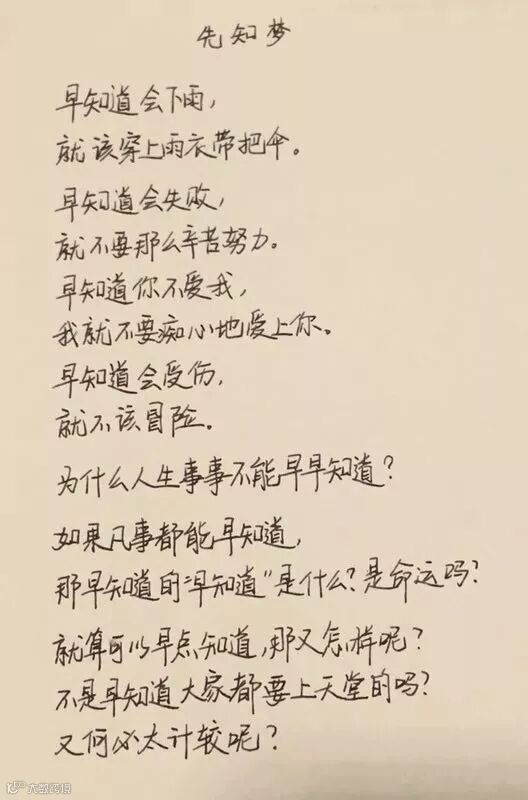 先知梦
早知道会下雨，
就该穿上雨衣带把伞。
早知道会失败，
就不要那么辛苦努力。
早知道你不爱我，
我就不要痴心地爱上你。
早知道会受伤，
就不该冒险。
为什么人生事事不能早早知道？
如果凡事都能早知道，
那早知道的“早知道”是什么？是命运吗？
就算可以早点知道，那又怎样呢？
不是早知道大家都要上天堂的吗？
又何必太计较呢？
大数跨境